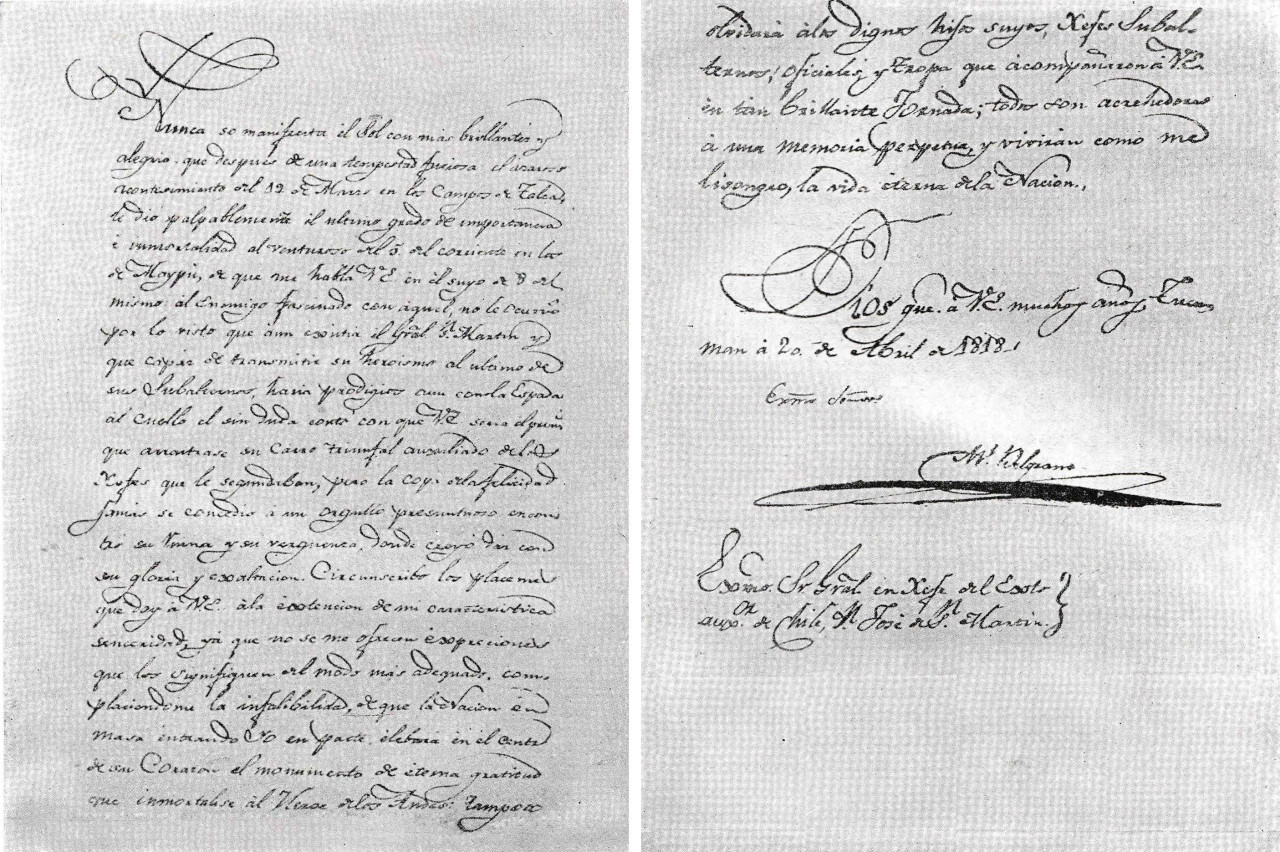 Nunca se manifiesta él Sol con más brillantes y
alegria que despues de una tempestad furiosa el azaroso
acontecimiento del 19 de Marzo en los Campos de Talca,
le dió palpablemente él ultimo grado de importancia
é inmortalidad al venturoso del 5. del corriente en los
de Maypú, de que me habla V.E en él suyo de 8 del
mismo: al Enemigo fascinado con aquel, no le ocurrió
por lo visto que aun existia él Gral. Sn. Martin y
que capáz de transmitir su heroismo al ultimo de
sus Subalternos, haria prodigios aun con la Espada
al Cuello el sin duda contó con que V.E seria el
que arrastrase su Carro triunfal auxiliado de los
Xefes que le segundaban, pero la de la felicidad
jamás se concedió á un orgullo presuntuoso encon
tró su ruina y su verguenza, donde creyó dar con
su gloria y exaltacion. Circunscribo los placemes
que doy á V.E. á la extencion de mi caracteristica
senceridad, yá que no se me ofrecen expreciones
que los signifiquen del modo más adequado, com-
placiendome la infalibilidad, de que la Nacion en
masa entrando Yo en parte, elebará en el centro
de su Corazon el monumento de eterna gratitud
que inmortalise ál Heroe de los Andes: tampoco
olvidará á los dignos hijos suyos, Xefes Subal-
ternos, oficiales, y tropa que acompañaron á V.E.
en tan brillante Jornada; todos son acrehedores
á una memoria perpetua, y vivirán como me
lisongeo, la vida éterna de la Nacion.
Dios gue. á V.E. muchos años, Tucu
man á 20. de Abril de 1818.
Exmo Señor
Ml. Belgrano
Exmo. Sr Gral en Xefe del Exto
auxor. de Chile, Dn José de Sn. Martin.